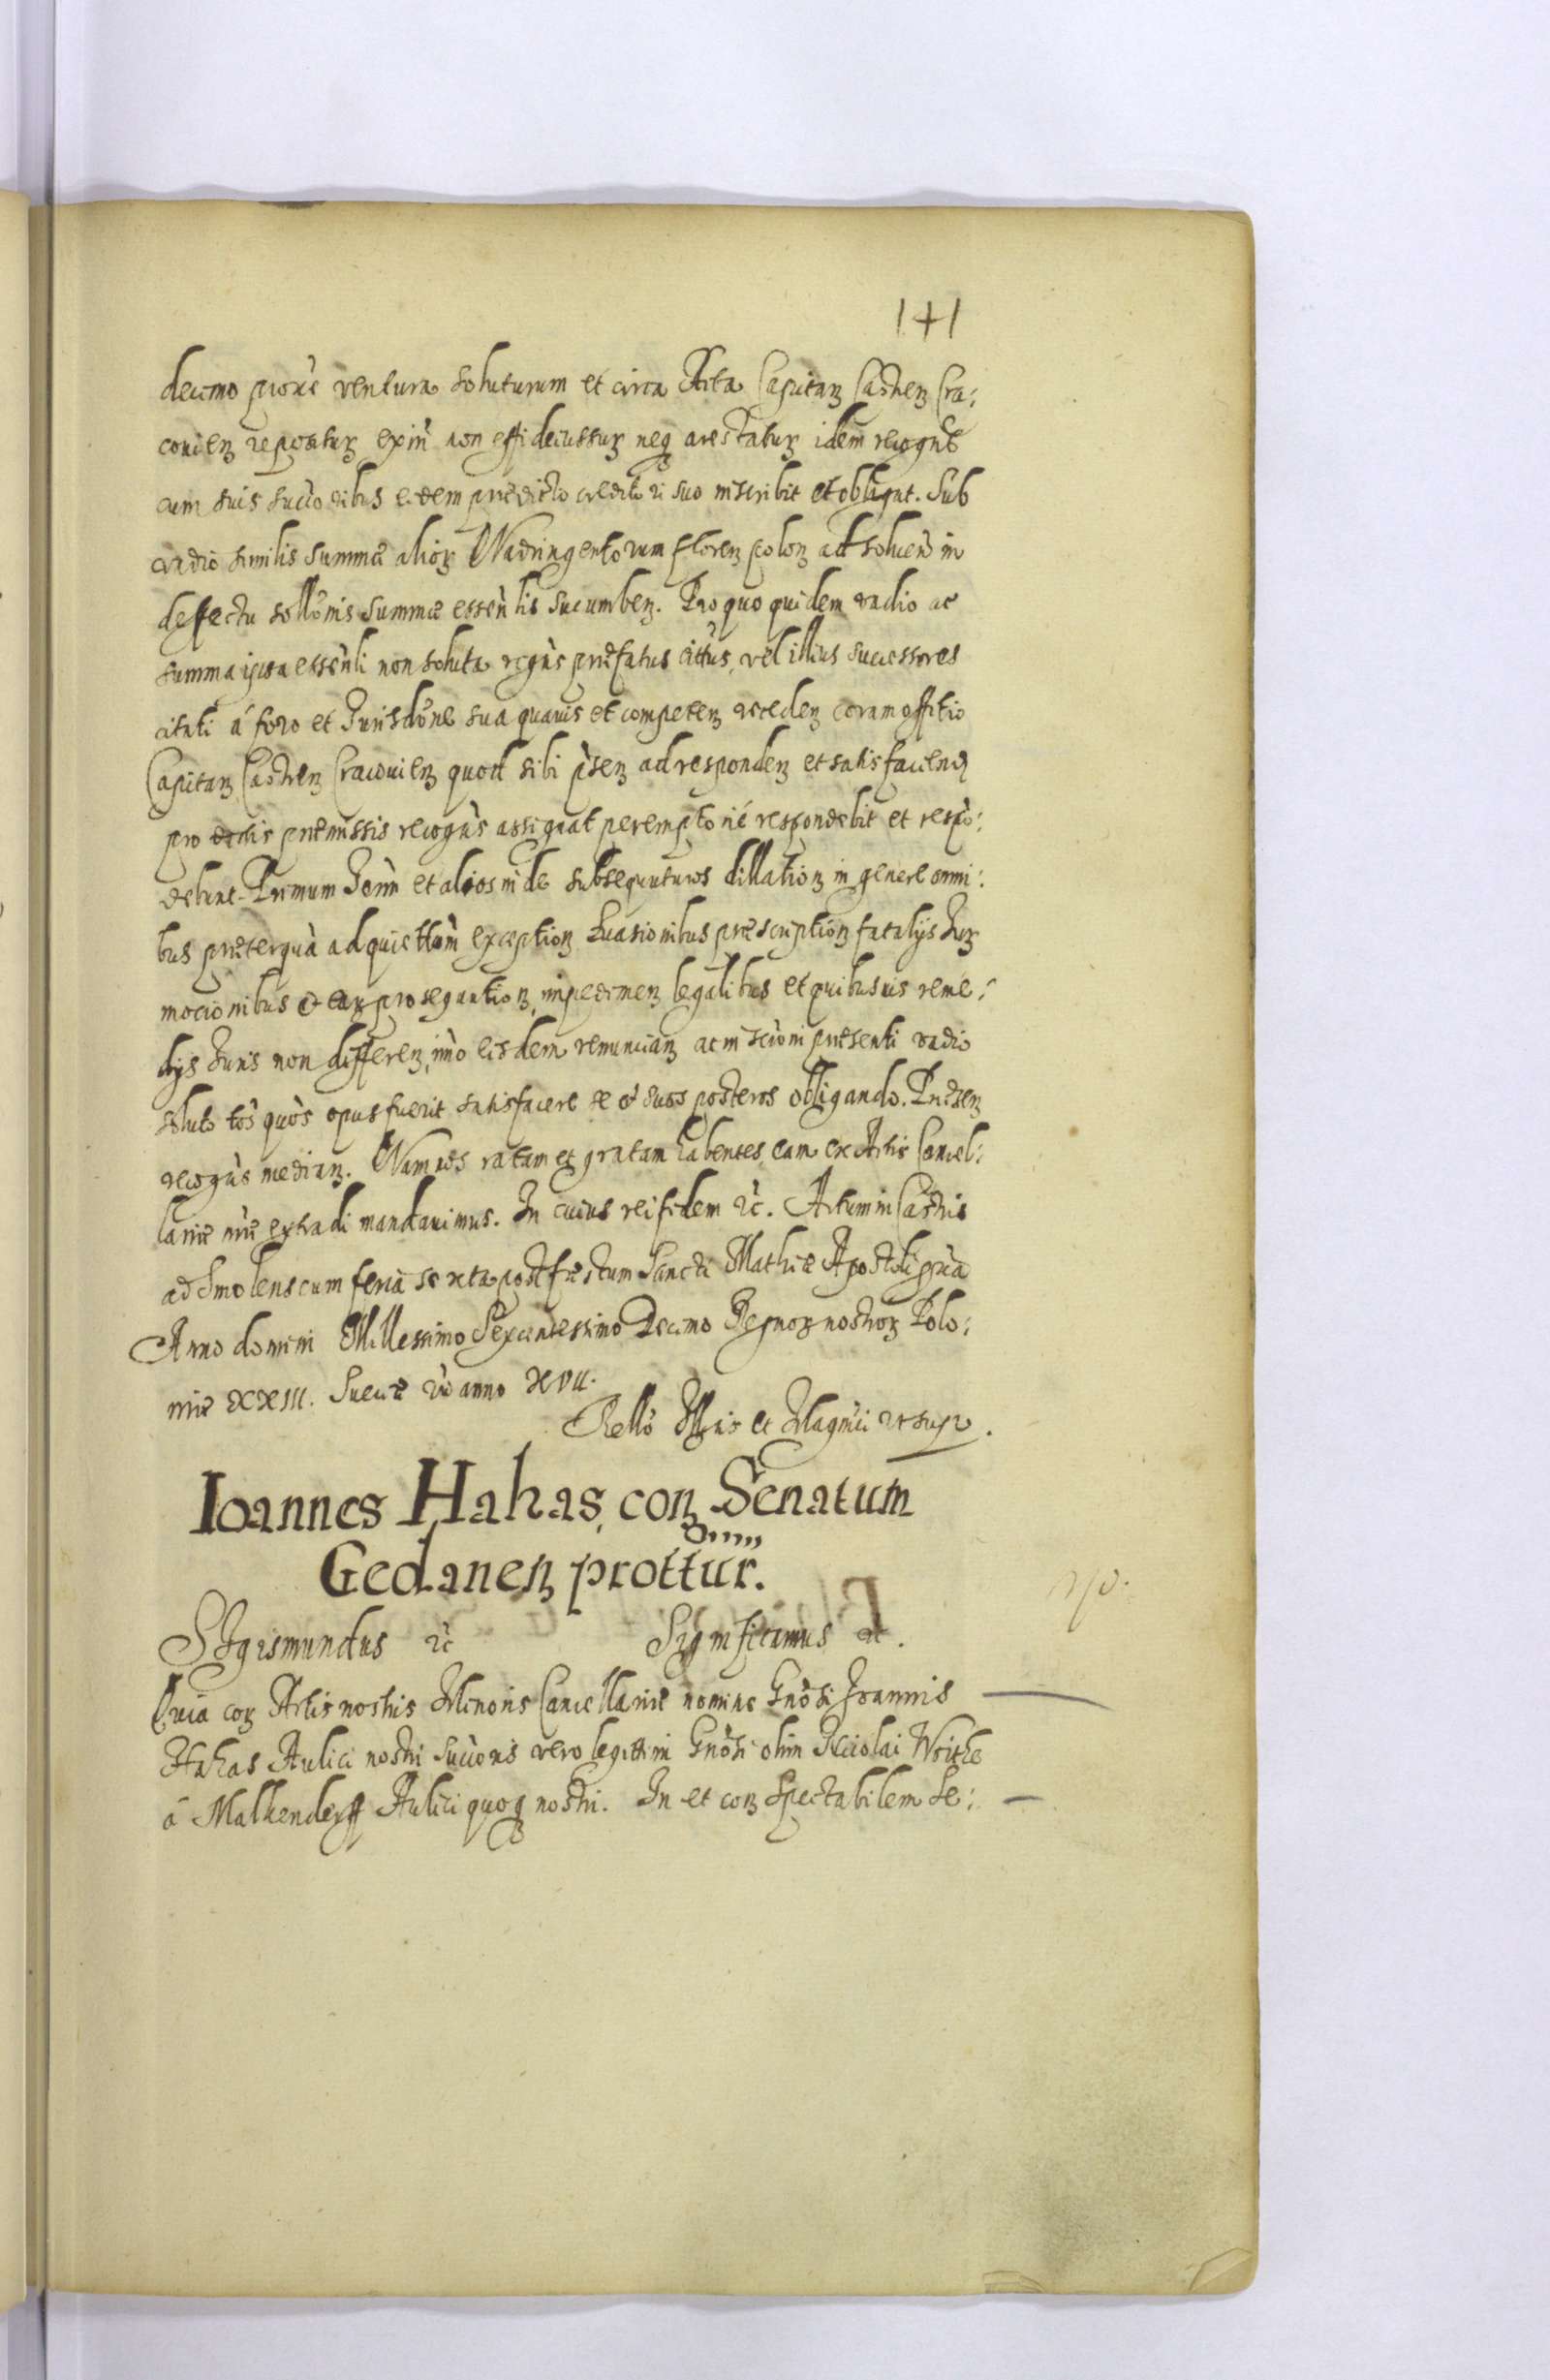 141
decimo proxe ventura soluturum et circa Acta Capitan Castren Cra:
covien reportur exin non effi deiussur neq arestatur idem recognt
cum suis succoribus eidem prædicto creditori suo inscribit et obligat. Sub
vadio similis summæ alior Quadringentorum floren polon ad solven in
deffectu sollonis summæ essentis sucumben. Pro quo quidem vadio ac
summa ipsa essenti non soluta regns præfatus cittus, vel illius successores
citati á foro et Jurisdone sua quavis et competen recedem coram offitio
Capitan Castren Cracovien quod sibi psen ad responden et satisfaciend
pro præmissis recogns assignat peremptorié respondebit et respo:
debunt. Primum Term et alios inde subsequturos dillation in genere omni:
bus præterquà ad quiettom exception Evasionibus præscription fatalijs Jur
mocionibus et ear prosequution, impedimen legalibus et quibusvis reme:
dijs Juris non differen, imo eisdem renuncian ac in scioni præsenti vadio
soluto tos quos opus fuerit satisfacere se et suos posteros obligando. Præsen
recogns median. Quam nos ratam et gratam habentes eam ex Actis Cancel:
lariæ nræ extradi mandavimus. In cuius rei fidem etc. Actum in Castris
ad Smolenscum feria sexta post festum Sancti Mathiæ Apostoli pria
Anno domini Millessimo Sexcentessimo Decimo Regnor nostror Polo:
niæ XXIII. Sueciæ vo anno XVII.
Rello Illris et Magnci ut supr.
Ioannes Hahas, con Senatum
Gedanen prottur.
SIgismundus etc Significamus etc.
Quia cor Actis nostris Minoris Cancellariæ nomine Gnosi Joannis
Hahas Aulici nostri succoris vero legittimi Gnosi olim Nicolai
á Malkendorff Aulici quoq nostri. In et con Spectabilem Se: